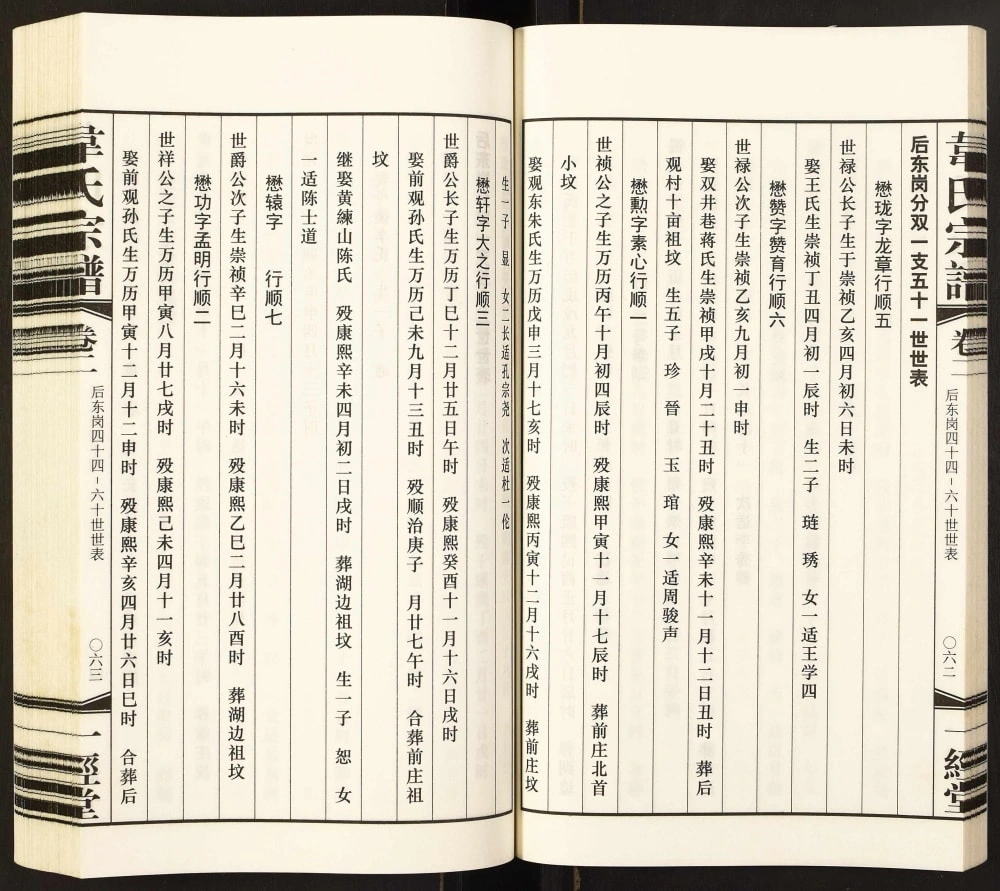 韋氏宗譜 卷二
后东岗四十四－六十世世表
〇六二
一經堂
后东岗分双一支五十一世世表
懋珑字龙章行顺五
世禄公长子生于崇祯乙亥四月初六日未时
娶王氏生崇祯丁丑四月初一辰时 生二子 琏 琇 女一适王学四
懋赞字赞育行顺六
世禄公次子生崇祯乙亥九月初一申时
娶双井巷蒋氏生崇祯甲戌十月二十丑时 殁康熙辛未十一月十二日丑时 葬后
观村十亩祖坟 生五子 珍 晉 玉 琯 女一适周骏声
懋勲字素心行顺一
世祯公之子生万历丙午十月初四辰时 殁康熙甲寅十一月十七辰时 葬前庄北首
小坟
娶观东朱氏生万历戊申三月十七亥时 殁康熙丙寅十二月十六戌时 葬前庄坟
生一子 显 女二长适孔宗尧 次适杜一伦
懋轩字大之行顺三
世爵公长子生万历丁巳十二月廿五日午时 殁康熙癸酉十一月十六日戌时
娶前观孙氏生万历己未九月十三丑时 殁顺治庚子 月廿七午时 合葬前庄祖
坟
继娶黄練山陈氏 殁康熙辛未四月初二日戌时 葬湖边祖坟 生一子 恕 女
一适陈士道
懋辕字 行顺七
世爵公次子生崇祯辛巳二月十六未时 殁康熙乙巳二月廿八酉时 葬湖边祖坟
懋功字孟明行顺二
世祥公之子生万历甲寅八月廿七戌时 殁康熙己未四月十一亥时
娶前观孙氏生万历甲寅十二月十二申时 殁康熙辛亥四月廿六日巳时 合葬后
韋氏宗譜 卷二
后东岗四十四－六十世世表
〇六三
一經堂